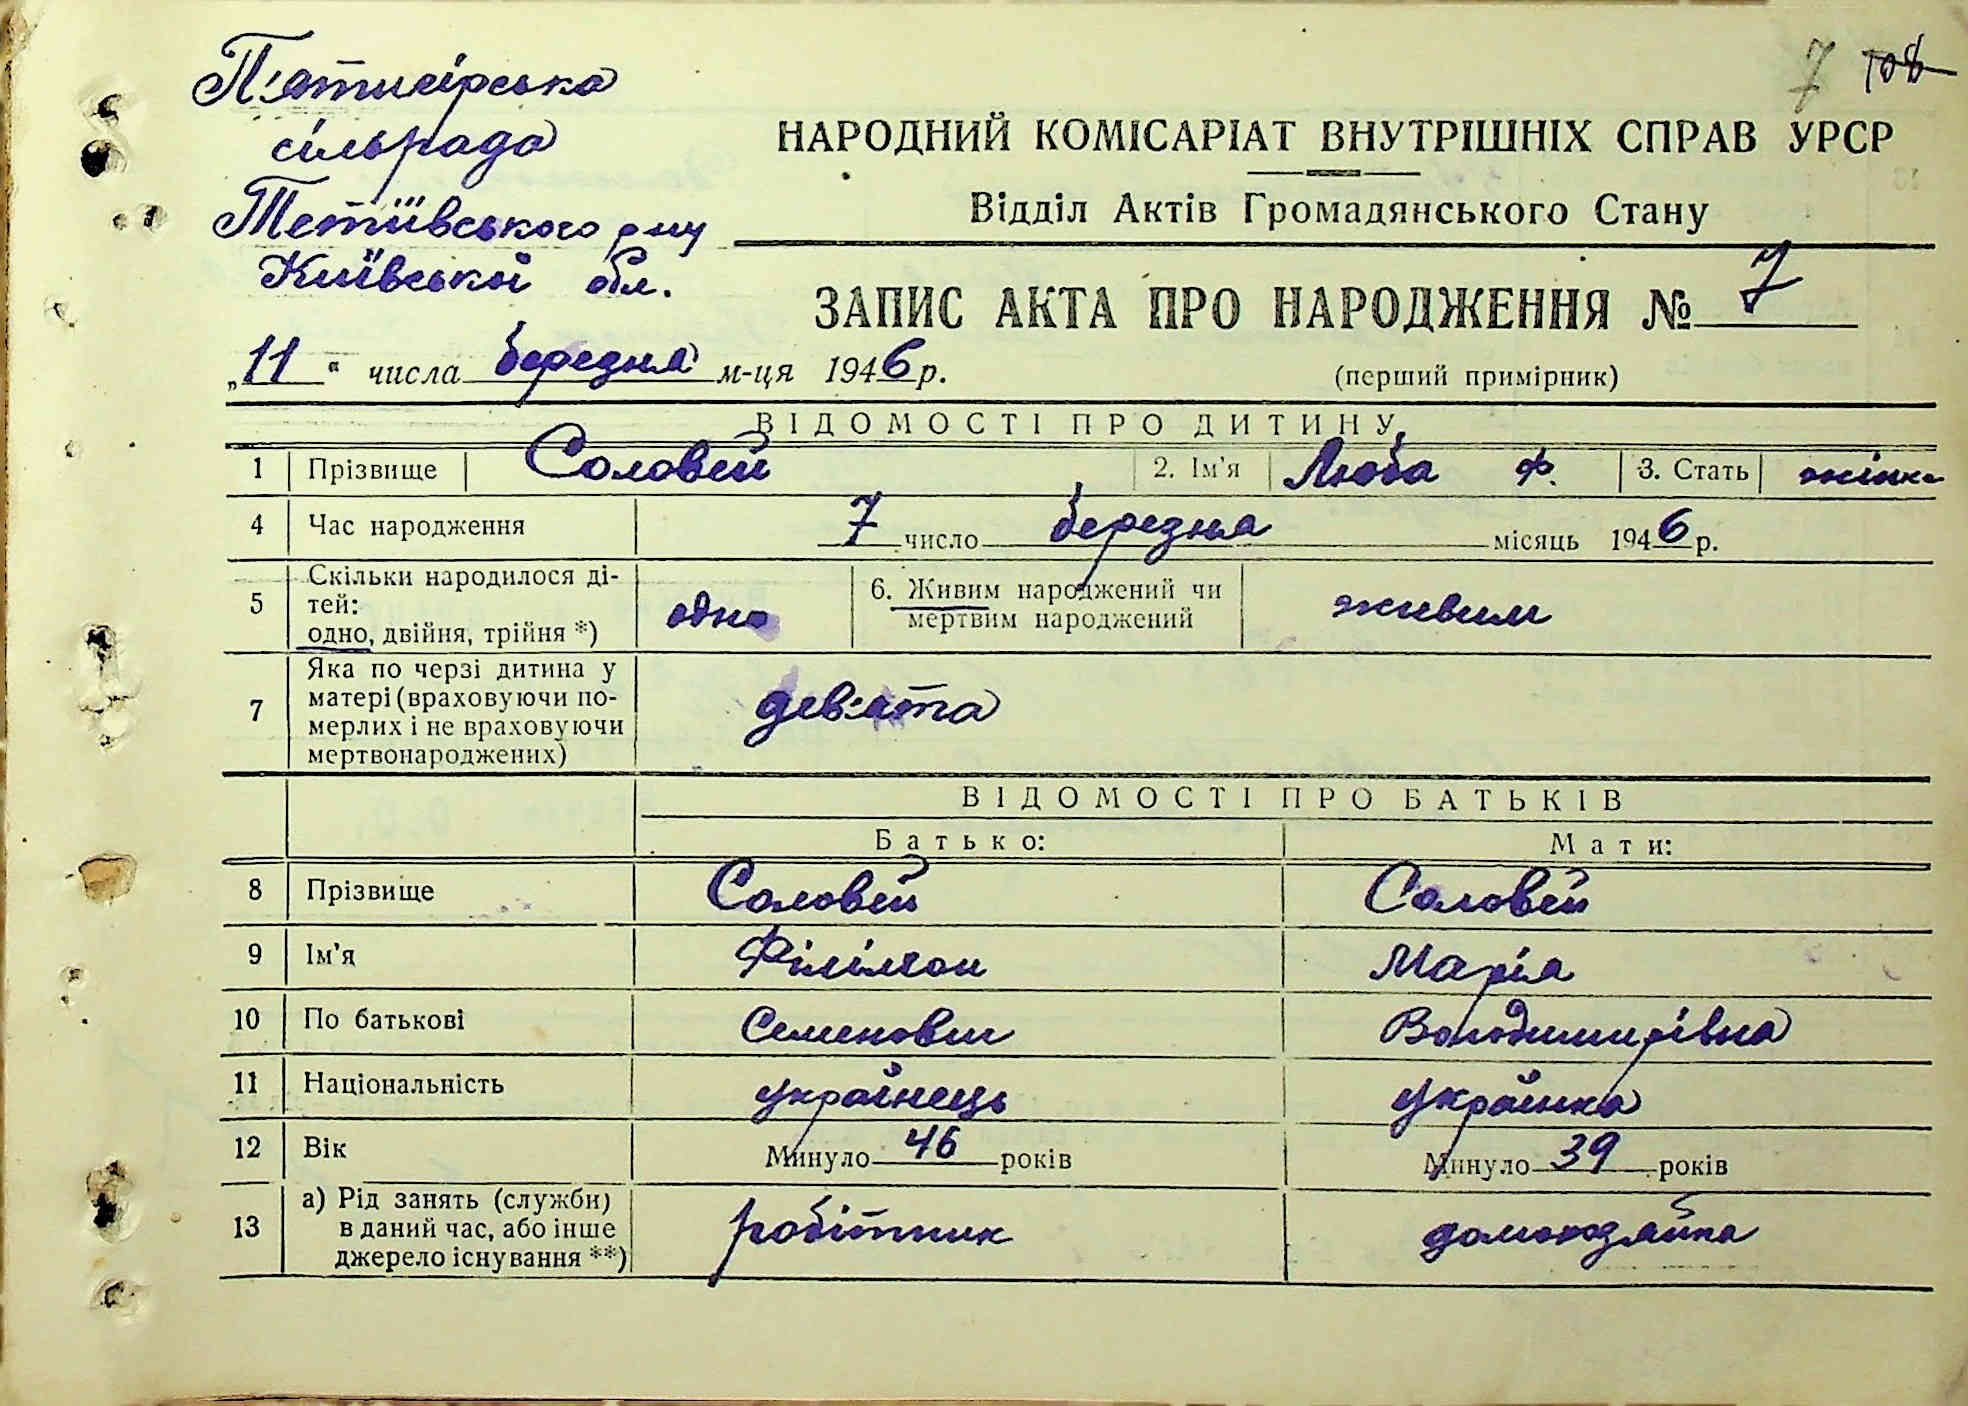 7 108
П'ятигірська
сільрада
Тетіївського р-ну
Київської обл.
НАРОДНИЙ КОМІСАРІАТ ВНУТРІШНІХ СПРАВ УРСР
Відділ Актів Громадянського Стану
ЗАПИС АКТА ПРО НАРОДЖЕННЯ № 7
„11“ числа березня м-ця 1946 р.
(перший примірник)
ВІДОМОСТІ ПРО ДИТИНУ
1 Прізвище Соловей 2. Ім'я Люба Ф. 3. Стать жінка
4 Час народження 7 число березня місяць 1946 р.
5 Скільки народилося ді-
тей:
одно, двійня, трійня *) одно
6. Живим народжений чи
мертвим народжений живим
7 Яка по черзі дитина у
матері (враховуючи по-
мерлих і не враховуючи
мертвонароджених) дев'ята
ВІДОМОСТІ ПРО БАТЬКІВ
Батько: Мати:
8 Прізвище Соловей Соловей
9 Ім'я Філімон Марія
10 По батькові Семенович Володимирівна
11 Національність українець українка
12 Вік Минуло 46 років Минуло 39 років
13 а) Рід занять (служби)
в даний час, або інше
джерело існування **) робітник домохазяйка